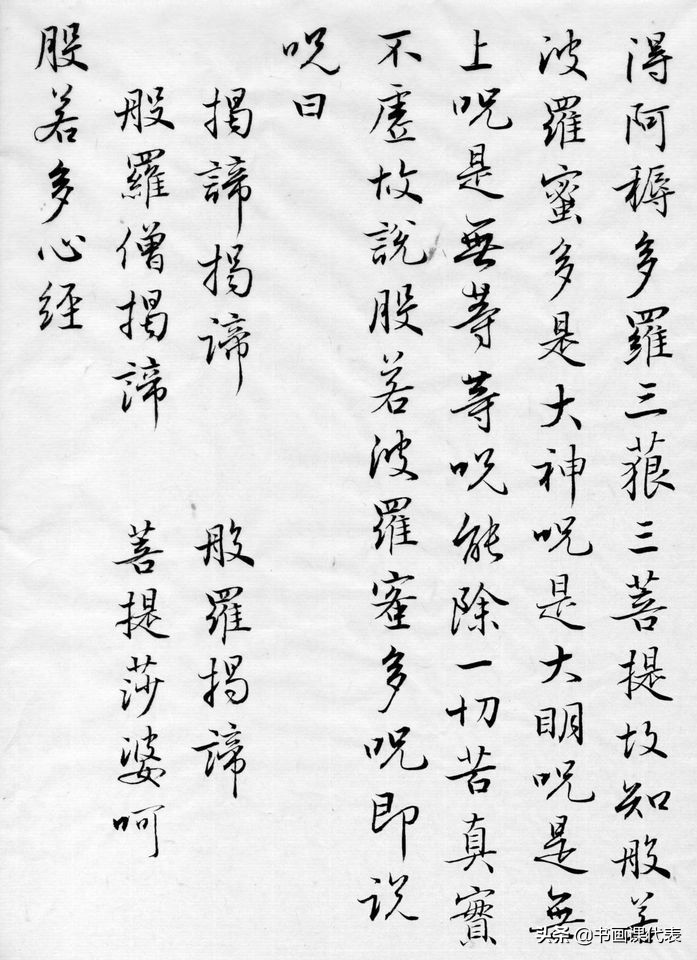 得阿耨多羅三藐三菩提故知般若
波羅蜜多是大神呪是大明呪是無
上呪是無等等呪能除一切苦真實
不虛故說般若波羅蜜多呪即説
呪曰
揭諦揭諦 般羅揭諦
般羅僧揭諦 菩提莎婆呵
般若多心経
头条 @书画课代表